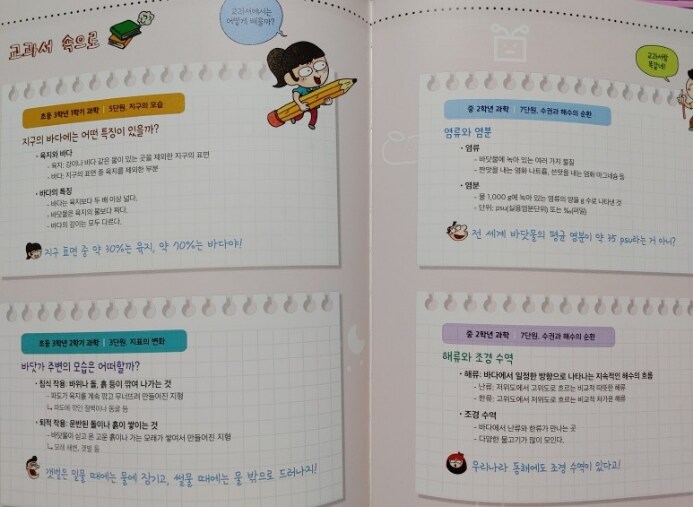 교과서 속으로
교과서에서는
어떻게 배울까?
초등 3학년 1학기 과학 | 5단원. 지구의 모습
지구의 바다에는 어떤 특징이 있을까?
• 육지와 바다
- 육지: 강이나 바다 같은 물이 있는 곳을 제외한 지구의 표면
- 바다: 지구의 표면 중 육지를 제외한 부분
• 바다의 특징
- 바다는 육지보다 두 배 이상 넓다.
- 바닷물은 육지의 물보다 짜다.
- 바다의 깊이는 모두 다르다.
지구 표면 중 약 30%는 육지, 약 70%는 바다야!
초등 3학년 2학기 과학 | 3단원. 지표의 변화
바닷가 주변의 모습은 어떠할까?
• 침식 작용: 바위나 돌, 흙 등이 깎여 나가는 것
- 파도가 육지를 계속 깎고 무너뜨려 만들어진 지형
↳ 파도에 깎인 절벽이나 동굴 등
• 퇴적 작용: 운반된 돌이나 흙이 쌓이는 것
- 바닷물이 싣고 온 고운 흙이나 가는 모래가 쌓여서 만들어진 지형
↳ 모래 해변, 갯벌 등
갯벌은 밀물 때에는 물에 잠기고, 썰물 때에는 물 밖으로 드러나지!
교과서랑
똑같네!
중 2학년 과학 | 7단원. 수권과 해수의 순환
염류와 염분
• 염류
- 바닷물에 녹아 있는 여러 가지 물질
- 짠맛을 내는 염화 나트륨, 쓴맛을 내는 염화 마그네슘 등
• 염분
- 물 1,000 g에 녹아 있는 염류의 양을 g 수로 나타낸 것
- 단위: psu(실용염분단위) 또는 ‰(퍼밀)
전 세계 바닷물의 평균 염분이 약 35 psu라는 거 아니?
중 2학년 과학 | 7단원. 수권과 해수의 순환
해류와 조경 수역
• 해류: 바다에서 일정한 방향으로 나타나는 지속적인 해수의 흐름
- 난류: 저위도에서 고위도로 흐르는 비교적 따뜻한 해류
- 한류: 고위도에서 저위도로 흐르는 비교적 차가운 해류
• 조경 수역
- 바다에서 난류와 한류가 만나는 곳
- 다양한 물고기가 많이 모인다.
우리나라 동해에도 조경 수역이 있다고!